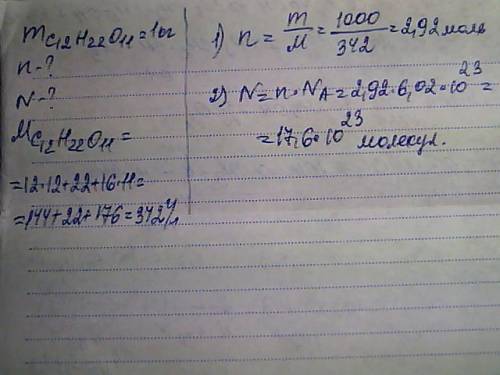 mC12H22O11=1кг
n-?
N-?
MC12H22O11=
=12·12+22+16·11=
=144+22+176=342г/м
1) n=m/M=1000/342=2,92 моль
2) N=n·NA=2,92·6,02·10^23=
=17,6·10^23 молекул.